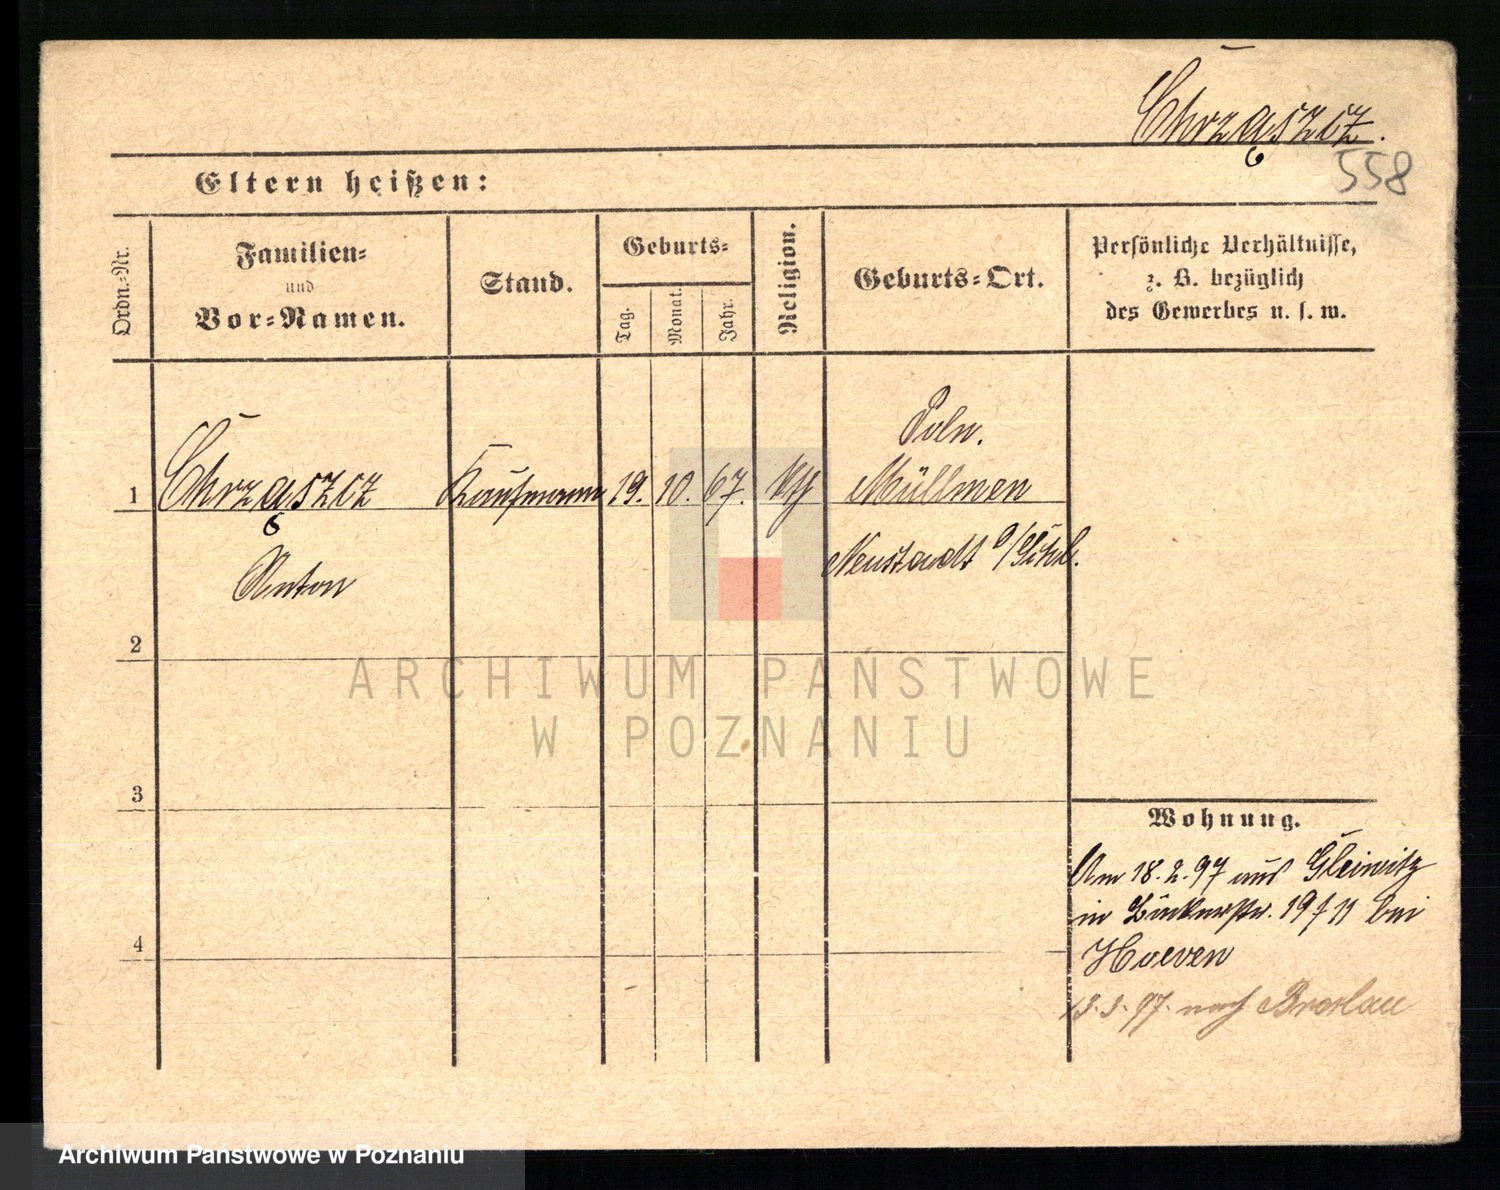 Chrząszcz.
558
Eltern heißen:
Ordn.-Nr.
Familien-
und
Vor-Namen.
Stand.
Geburts-
Tag.
Monat.
Jahr.
Religion.
Geburts-Ort.
Persönliche Verhältnisse,
z. B. bezüglich
des Gewerbes u. s. w.
1 Chrząszcz Kaufmann 19. 10. 67. kth Poln.
Müllmen
Anton
Neustadt O/Schl.
2
3
4
Wohnung.
Am 18.2.97 aus Gleiwitz
in 19 II bei
Hoeven
13.3.97. nach Breslau
ARCHIWUM PAŃSTWOWE
W POZNANIU
Archiwum Państwowe w Poznaniu